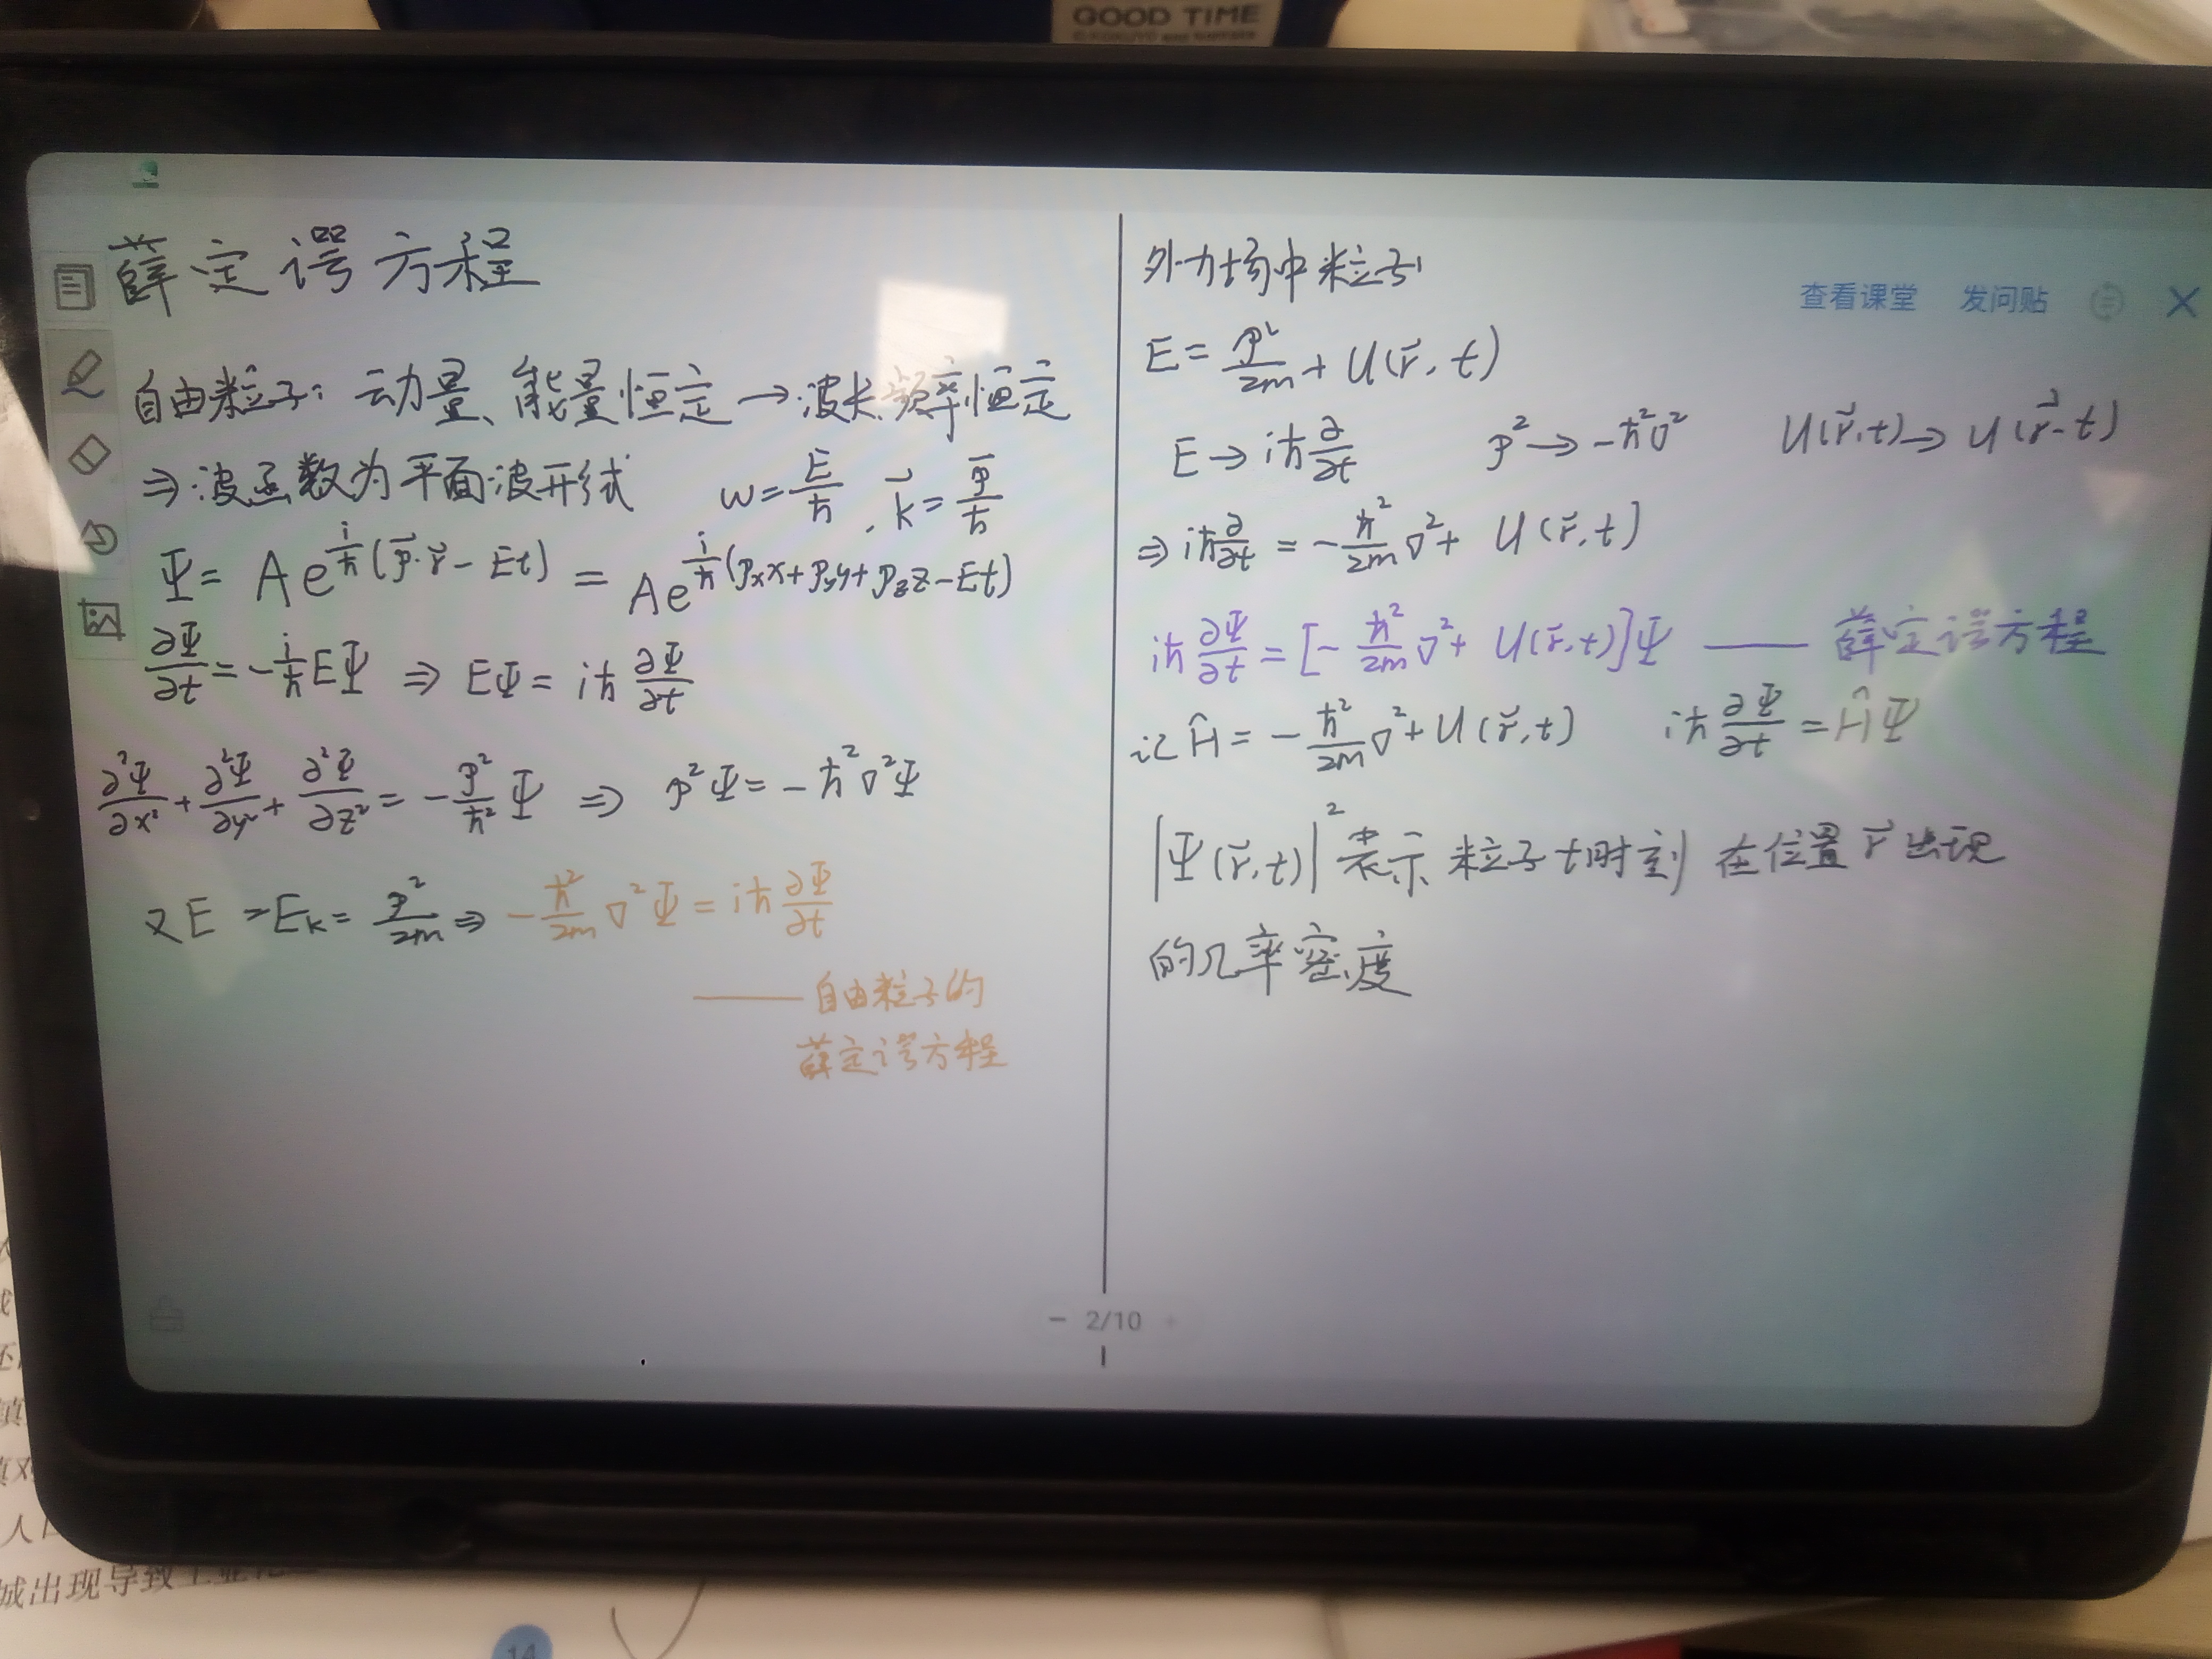 GOOD TIME
薛定谔方程
自由粒子：动量、能量恒定→波长、频率恒定
⇒波函数为平面波形式 ω=E/ħ, k⃗=p⃗/ħ
Ψ=Ae^{i/ħ(p⃗·r⃗-Et)}=Ae^{i/ħ(pₓx+p_y y+p_z z-Et)}
∂Ψ/∂t=-i/ħ EΨ ⇒ EΨ=iħ ∂Ψ/∂t
∂²Ψ/∂x²+∂²Ψ/∂y²+∂²Ψ/∂z²=-p²/ħ² Ψ ⇒ p²Ψ=-ħ²∇²Ψ
又E=E_k=p²/2m ⇒ -ħ²/2m ∇²Ψ=iħ ∂Ψ/∂t
——自由粒子的
薛定谔方程
外力场中粒子
查看课堂 发问贴
E=p²/2m+U(r⃗,t)
E→iħ ∂/∂t p²→-ħ²∇² U(r⃗,t)→U(r⃗-t)
⇒iħ ∂/∂t=-ħ²/2m ∇²+U(r⃗,t)
iħ ∂Ψ/∂t=[-ħ²/2m ∇²+U(r⃗,t)]Ψ ——薛定谔方程
记Ĥ=-ħ²/2m ∇²+U(r⃗,t) iħ ∂Ψ/∂t=ĤΨ
|Ψ(r⃗,t)|²表示粒子t时刻在位置r⃗出现
的几率密度
2/10
人
城出现导致工业化
14